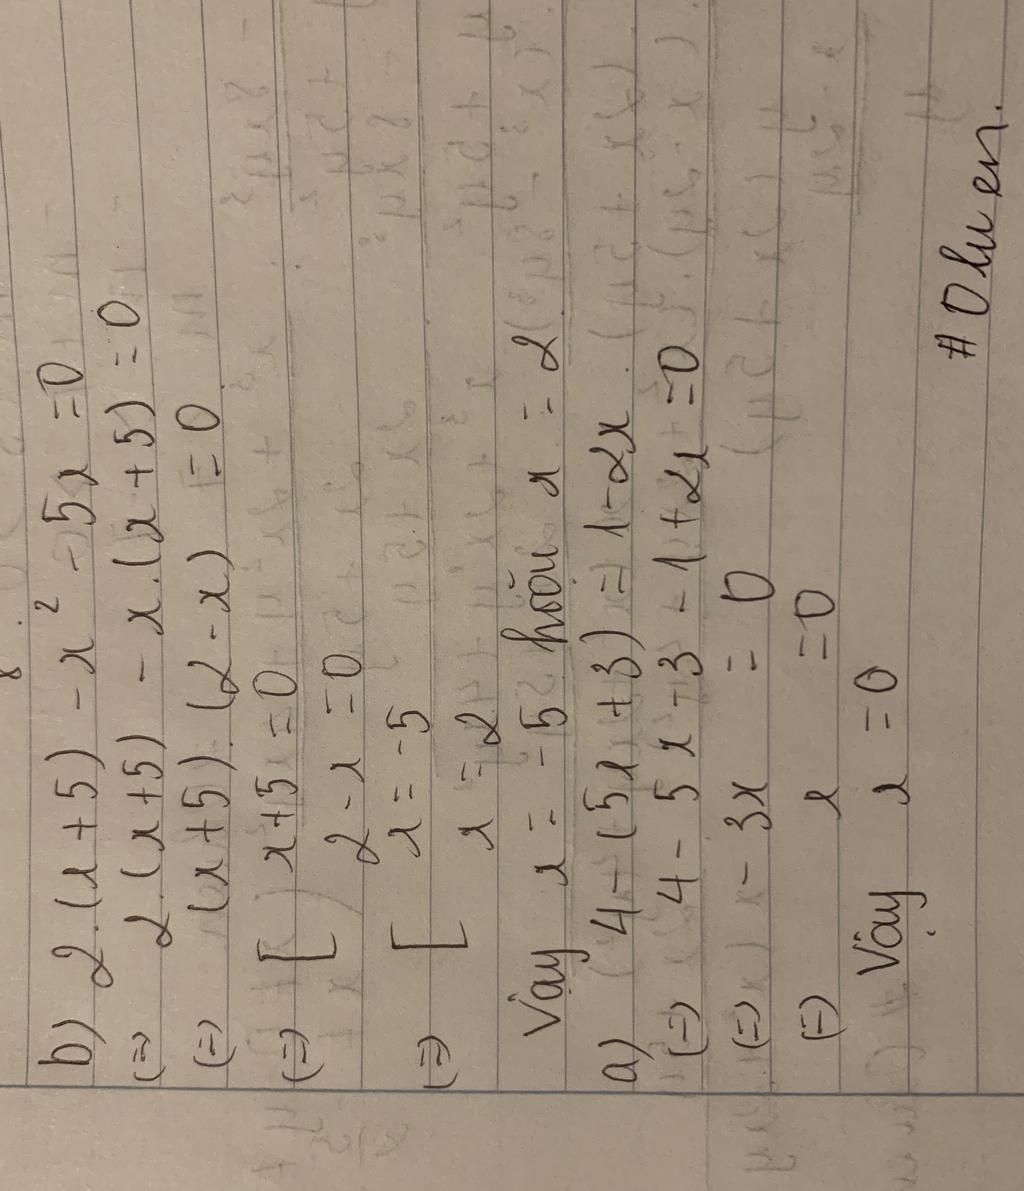 b) 2.(x+5) - x² - 5x = 0
(=) 2.(x+5) - x.(x+5) = 0
(=) (x+5).(2-x) = 0
(=) [ x+5 = 0
2-x = 0
(=) [ x = -5
x = 2
Vậy x = -5 hoặc x = 2
a) 4-(5x+3) = 1-2x
(=) 4-5x+3-1+2x = 0
(=) -3x = 0
(=) x = 0
Vậy x = 0